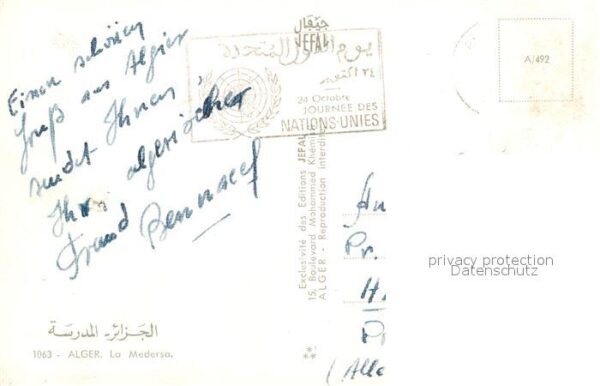 Einen schönen
Gruß aus Algier
sendet Ihnen
Ihr algerischer
Freund Bennacef
جيفال
JEFAL
يوم الأمم المتحدة
٢٤ اكتوبر
24 Octobre
JOURNÉE DES
NATIONS-UNIES
A/492
Exclusivité des Editions JEFAL
15, Boulevard Mohammed Khémisti
ALGER - Reproduction interdite
Pr.
H
(Alle
privacy protection
Datenschutz
الجزائر- المدرسة
1063 - ALGER. La Medersa.